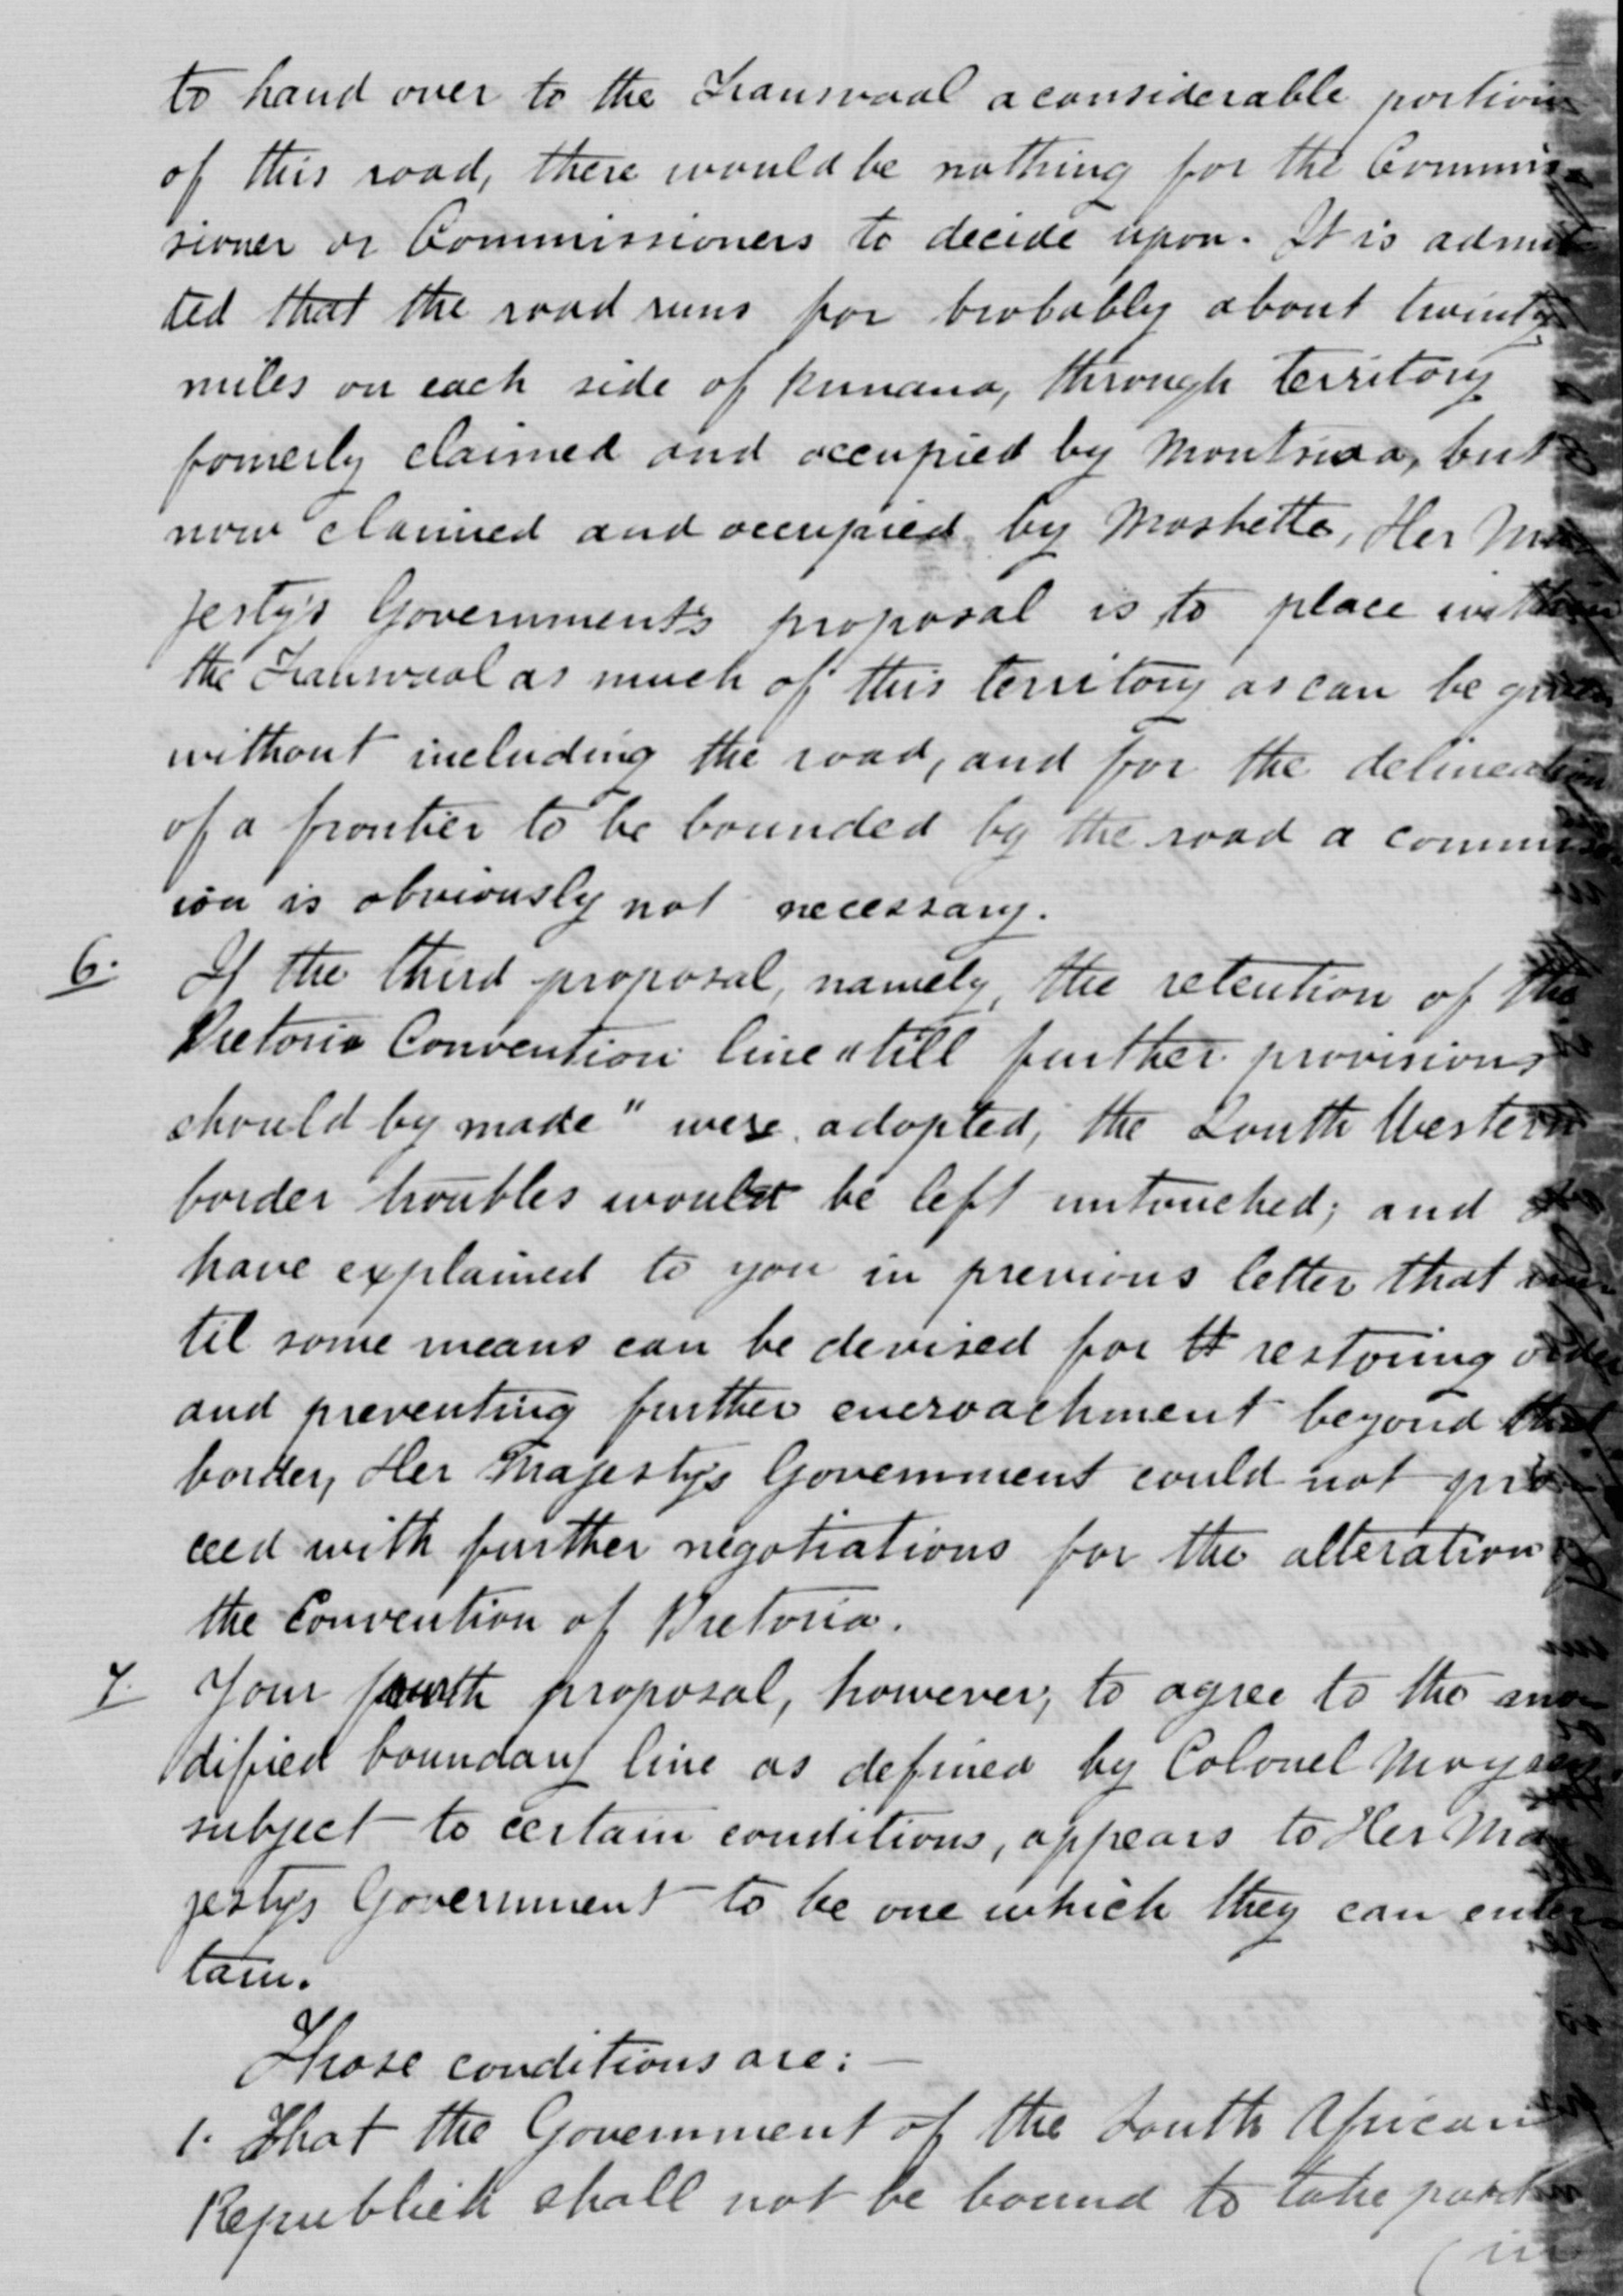 to hand over to the Transvaal a considerable portion
of this road, there would be nothing for the Commis-
sioner or Commissioners to decide upon. It is admit
ted that the road runs for probably about twenty
miles on each side of Kunana, through territory
fomerly claimed and occupied by Montsioa, but
now claimed and occupied by Moshette, Her Ma
jesty's Government's proposal is to place within
the Transvaal as much of this territory as can be given
without including the road, and for the delineation
of a frontier to be bounded by the road a commiss
ion is obviously not necessary.
6. If the third proposal, namely, the retention of the
Pretoria Convention line "till further provisions
should by made" were adopted, the South Western
border troubles would be left untouched; and I
have explained to you in previous letter that un
til some means can be devised for restoring order
and preventing further encroachment beyond that
border, Her Majesty's Government could not pro-
ceed with further negotiations for the alteration of
the Convention of Pretoria.
7. Your fourth proposal, however, to agree to the
dified boundary line as defined by Colonel Moysey
subject to certain conditions, appears to Her Ma
jesty's Government to be one which they can enter
tain.
Those conditions are: —
1. That the Government of the South African
Republick shall not be bound to take part
(in